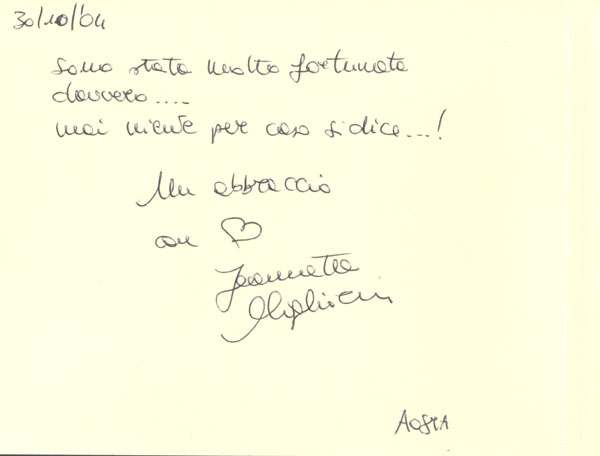 30/10/'04
Sono stata molto fortunata
davvero....
mai niente per caso si dice...!
Un abbraccio
con ♡
Jeannette
AOSTA